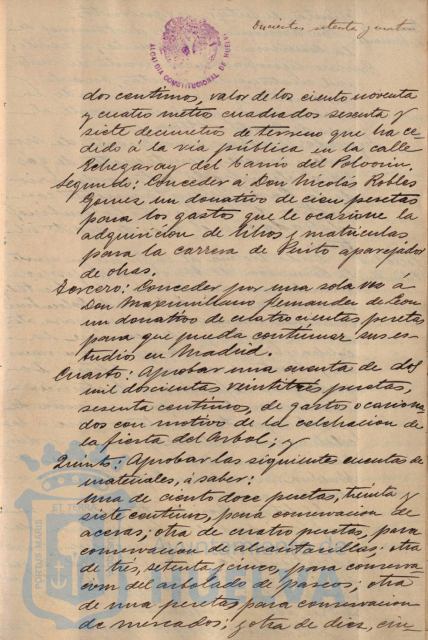 Doscientos setenta y cuatro
ALCALDIA CONSTITUCIONAL DE HUELVA
dos centimos, valor de los ciento noventa
y cuatro metros cuadrados sesenta y
siete decimetros de terreno que ha ce-
dido á la via pública en la calle
Echegaray del barrio del Polvorin.
Segundo: Conceder á Don Nicolas Robles
Gomez un donativo de cien pesetas
para los gastos que le ocasione la
adquisicion de libros y matriculas
para la carrera de Perito aparejador
de obras.
Tercero: Conceder por una sola vez á
Don Maximiliano Fernandez de Leon
un donativo de cuatrocientas pesetas
para que pueda continuar sus es-
tudios en Madrid.
Cuarto: Aprobar una cuenta de dos
mil doscientas veintitres pesetas,
sesenta centimos, de gastos ocasiona-
dos con motivo de la celebracion de
la fiesta del Arbol; y
Quinto: Aprobar las siguientes cuentas de
materiales, á saber:
Una de ciento doce pesetas, treinta y
siete centimos, para conservacion de
aceras; otra de cuatro pesetas, para
conservacion de alcantarillas; otra
de tres, setenta y cinco, para conserva-
cion del arbolado de paseos; otra
de una peseta para conservacion
de mercados; y otra de diez, cin-
PORTUS MARIS
HUELVA